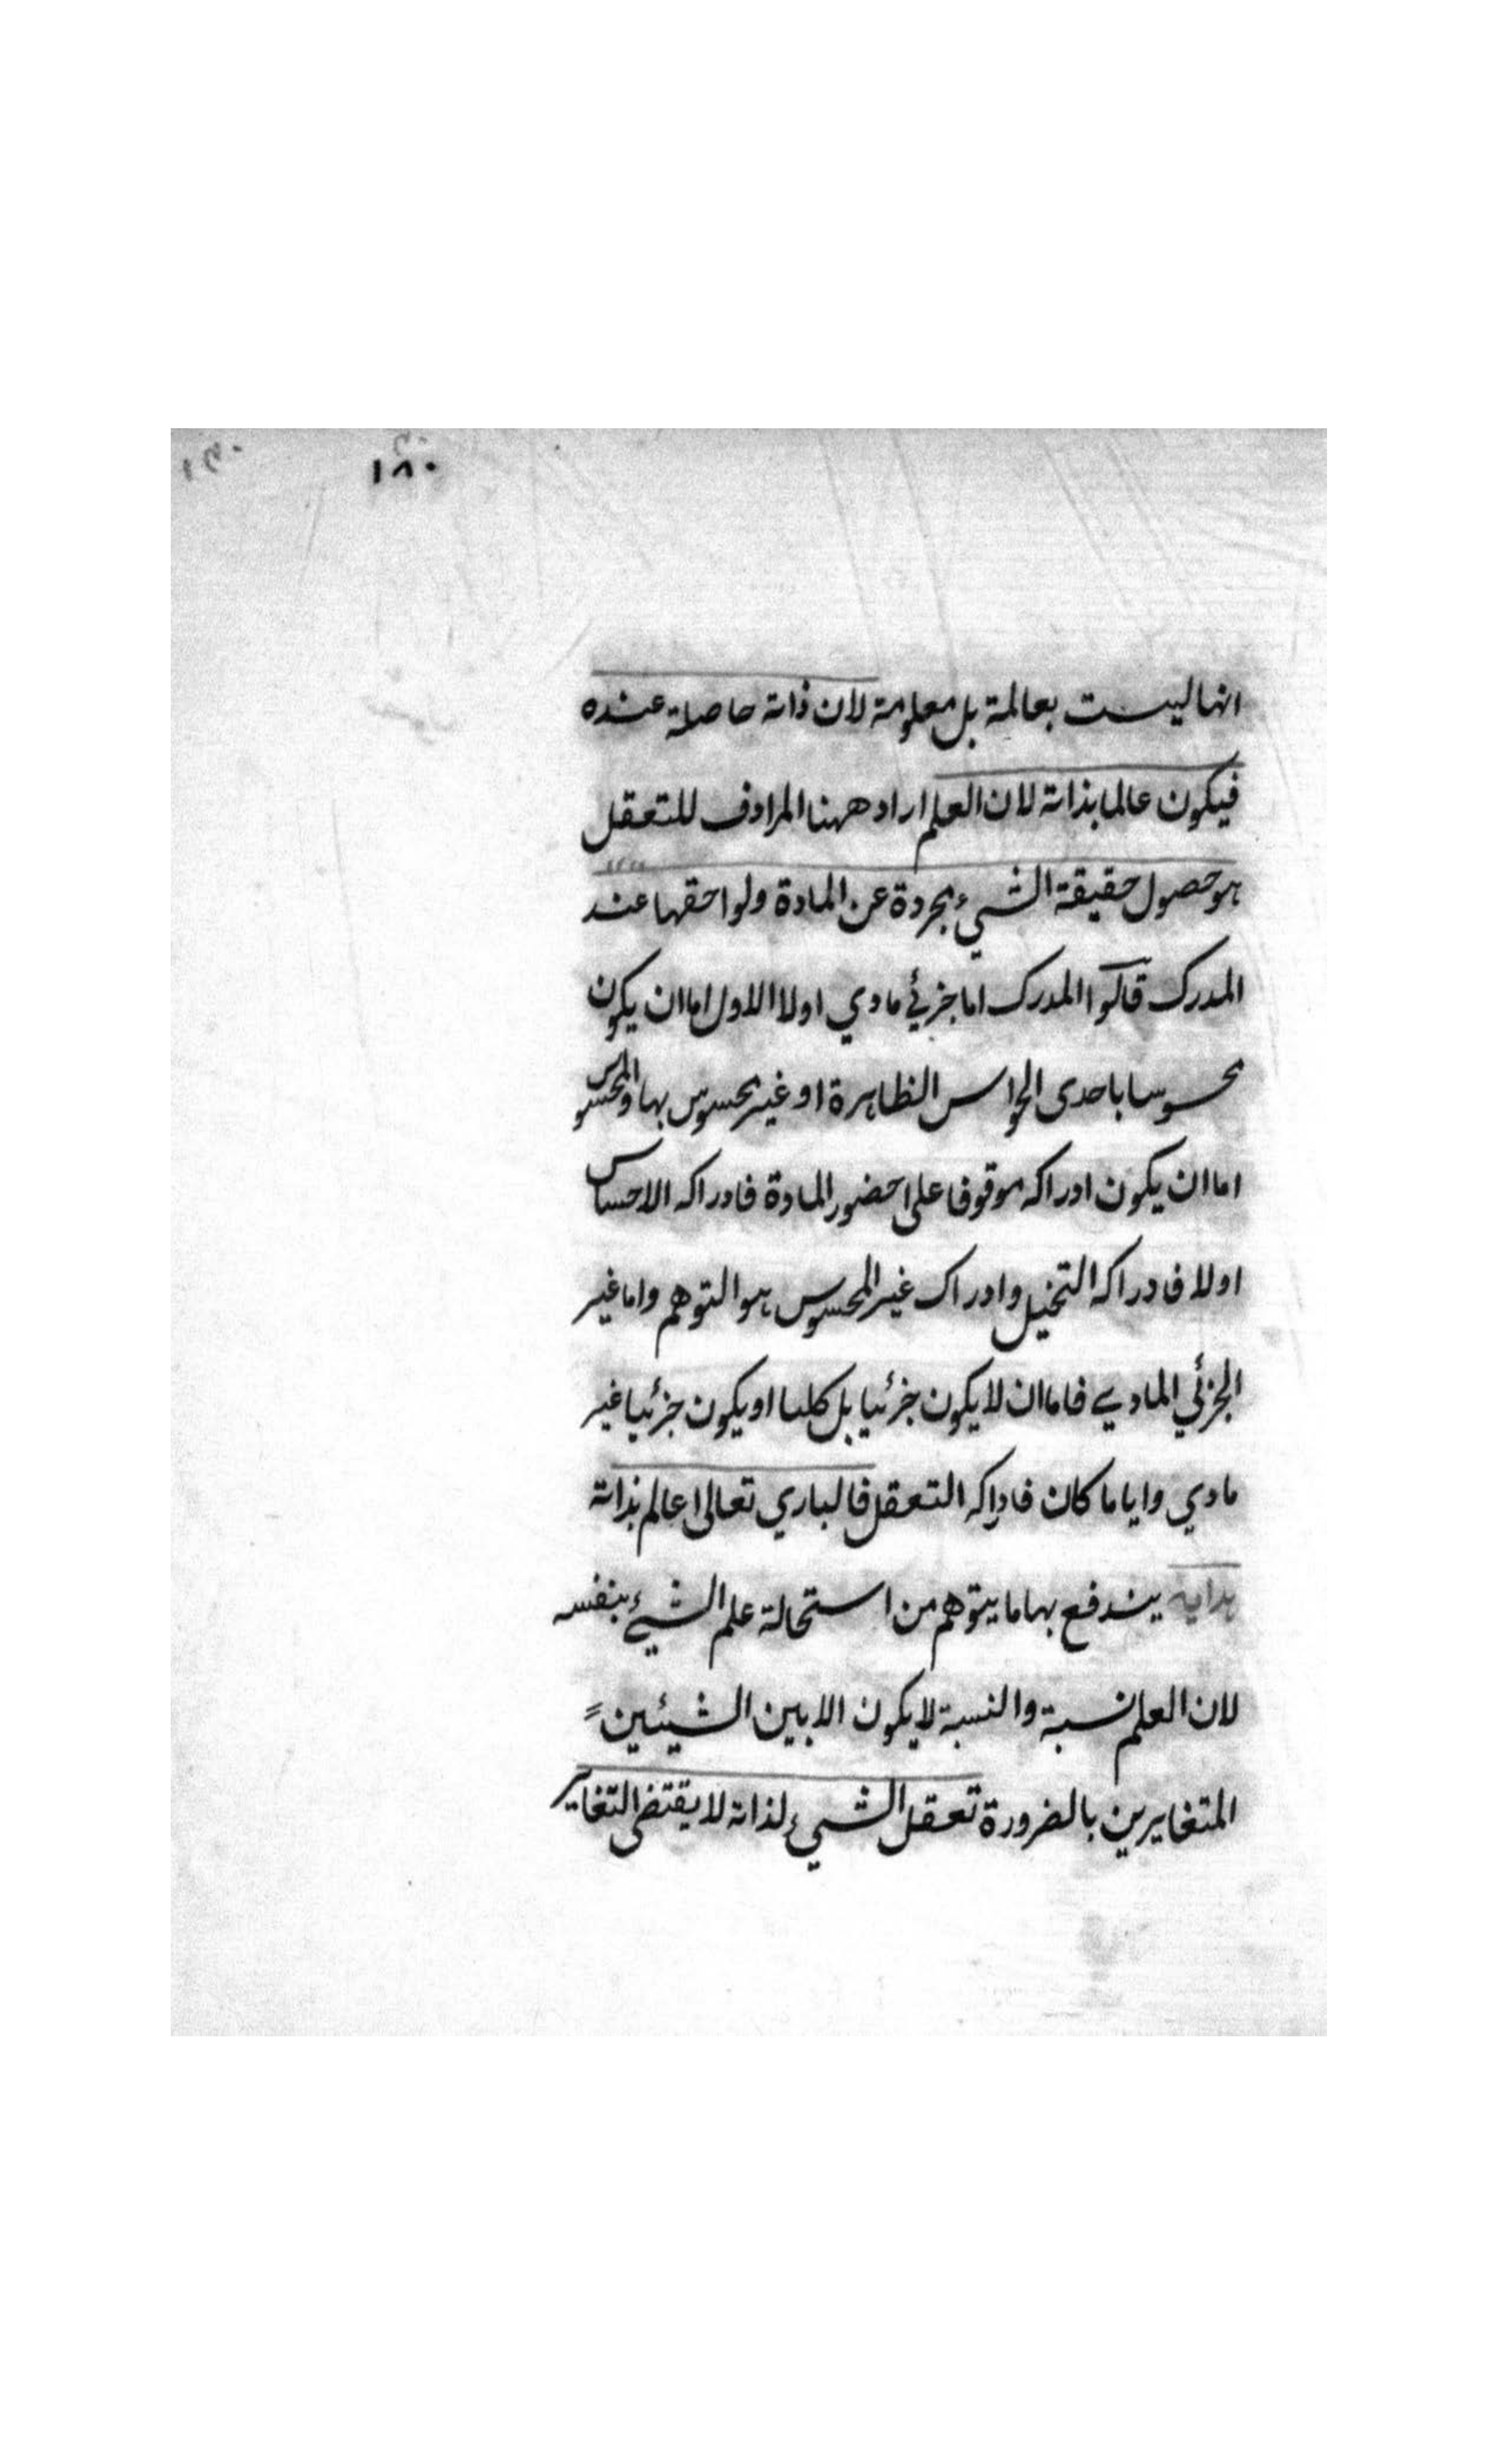 ١٨٠
انها ليست بعالمة بل معلومة لان ذاته حاصلة عنده
فيكون عالما بذاته لان العلم اراد ههنا المرادف للتعقل
هو حصول حقيقة الشيء مجردة عن المادة ولواحقها عند
المدرك قالوا المدرك اما جزئي مادي اولا الاول اما ان يكون
محسوسا باحدى الحواس الظاهرة او غير محسوس بها والمحسوس
اما ان يكون ادراكه موقوفا على حضور المادة فادراكه الاحساس
اولا فادراكه التخيل وادراك غير المحسوس هو التوهم واما غير
الجزئي المادي فاما ان لا يكون جزئيا بل كليا او يكون جزئيا غير
مادي وايا ما كان فادراكه التعقل فالباري تعالى عالم بذاته
هداية يندفع بها ما يتوهم من استحالة علم الشيء بنفسه
لان العلم نسبة والنسبة لا يكون الا بين الشيئين
المتغايرين بالضرورة تعقل الشيء لذاته لا يقتضى التغاير